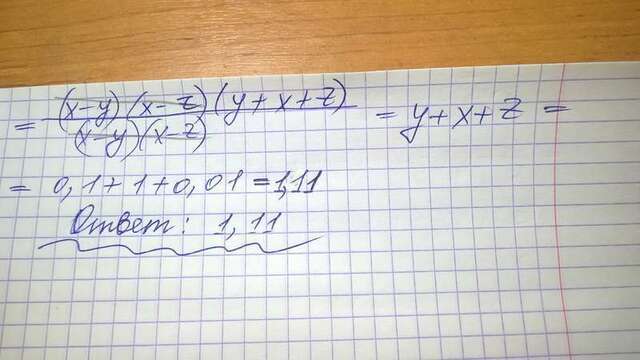 = (x-y)(x-z)(y+x+z) / (x-y)(x-z) = y+x+z =
= 0,1+1+0,01=1,11
Ответ: 1,11